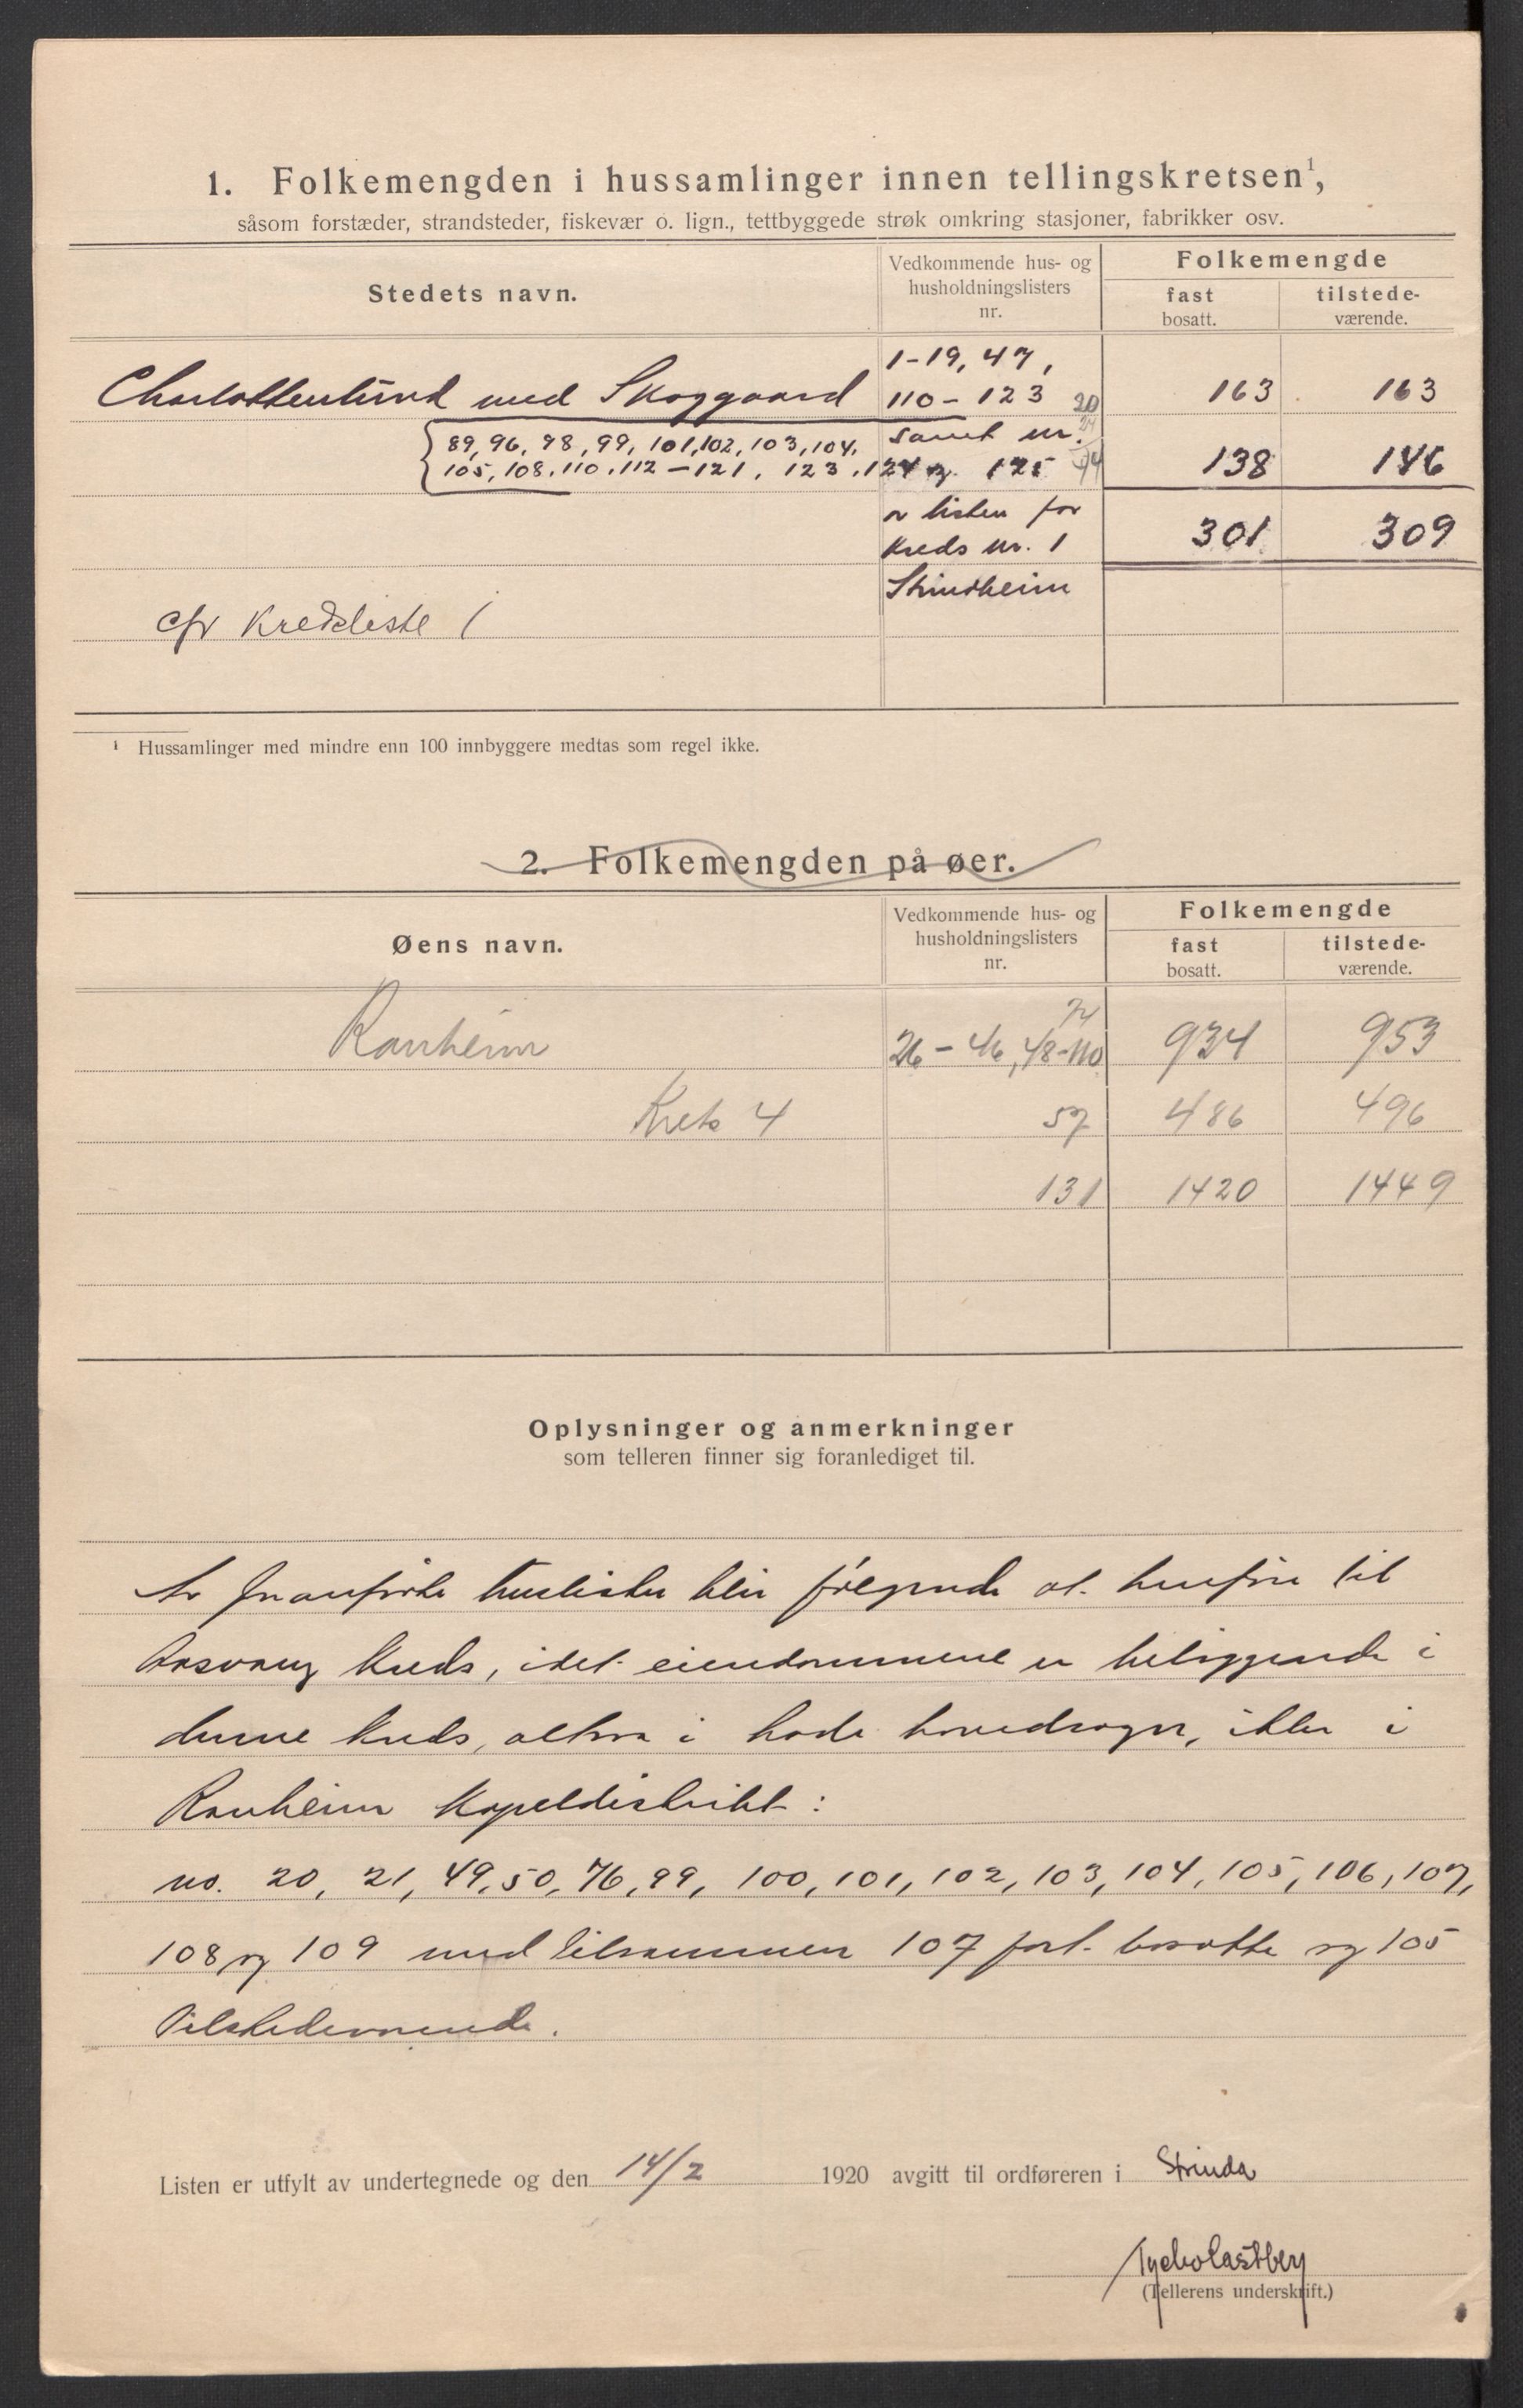 1. Folkemengden i hussamlinger innen tellingskretsen¹,
såsom forstæder, strandsteder, fiskevær o. lign., tettbyggede strøk omkring stasjoner, fabrikker osv.
Stedets navn.
Vedkommende hus- og husholdningslisters nr.
Folkemengde
fast bosatt.
tilstede-værende.
1-19, 47,
Charlottenlund med Skoggaard 110 - 123 20 163 163
89, 96, 98, 99, 101, 102, 103, 104, samt nr. 24
105, 108, 110, 112 - 121, 123, 124 og 125 44 138 146
av listen for
kreds nr. 1 301 309
Strindheim
cfr kredsliste 1
¹ Hussamlinger med mindre enn 100 innbyggere medtas som regel ikke.
2. Folkemengden på øer.
Øens navn.
Vedkommende hus- og husholdningslisters nr.
Folkemengde
fast bosatt.
tilstede-værende.
74
Ranheim 26 - 46, 48-110 934 953
Krets 4 57 486 496
131 1420 1449
Oplysninger og anmerkninger
som telleren finner sig foranlediget til.
Av foranførte huslister blir følgende at henføre til
kreds, idet eiendommene er beliggende i
denne kreds, altsaa i Lade hovedsogn, ikke i
Ranheim Kapeldistrikt:
no. 20, 21, 49, 50, 76, 99, 100, 101, 102, 103, 104, 105, 106, 107,
108 og 109 med tilsammen 107 fast bosatte og 105
Tilstedeværende.
Listen er utfylt av undertegnede og den 14/2 1920 avgitt til ordføreren i Strinda
Tycho Castberg
(Tellerens underskrift.)